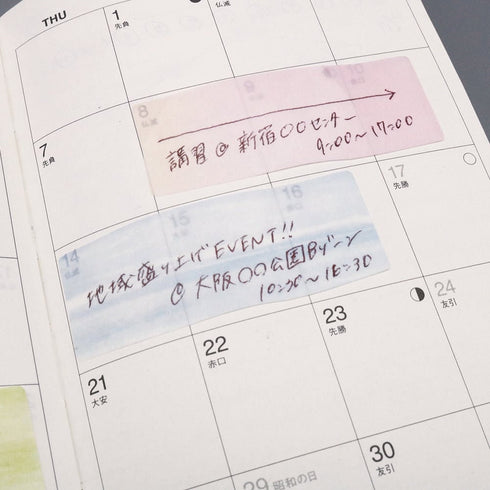 THU
1
先負
仏滅
8
仏滅
9
10
講習@新宿〇〇センター
9:00～17:00
7
先負
17
先勝
14
15
16
地域盛り上げEVENT!!
@大阪〇〇公園Bゾーン
10:30～16:30
21
大安
22
赤口
23
先勝
24
友引
29 昭和の日
30
友引